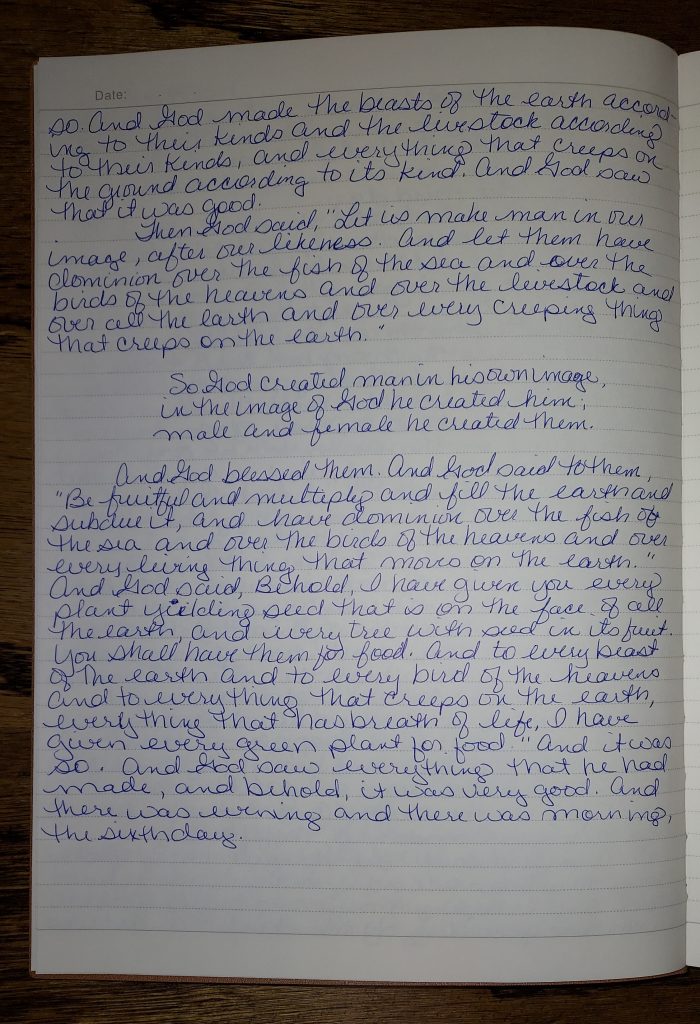 Date:
so. And God made the beasts of the earth accord-
ing to their kinds and the livestock according
to their kinds, and everything that creeps on
the ground according to its kind. And God saw
that it was good.
Then God said, "Let us make man in our
image, after our likeness. And let them have
dominion over the fish of the sea and over the
birds of the heavens and over the livestock and
over all the earth and over every creeping thing
that creeps on the earth."
So God created man in his own image,
in the image of God he created him;
male and female he created them.
And God blessed them. And God said to them,
"Be fruitful and multiply and fill the earth and
subdue it, and have dominion over the fish of
the sea and over the birds of the heavens and over
every living thing that moves on the earth."
And God said, Behold, I have given you every
plant yielding seed that is on the face of all
the earth, and every tree with seed in its fruit.
You shall have them for food. And to every beast
of the earth and to every bird of the heavens
and to everything that creeps on the earth,
everything that has breath of life, I have
given every green plant for food." And it was
so. And God saw everything that he had
made, and behold, it was very good. And
there was evening and there was morning,
the sixth day.